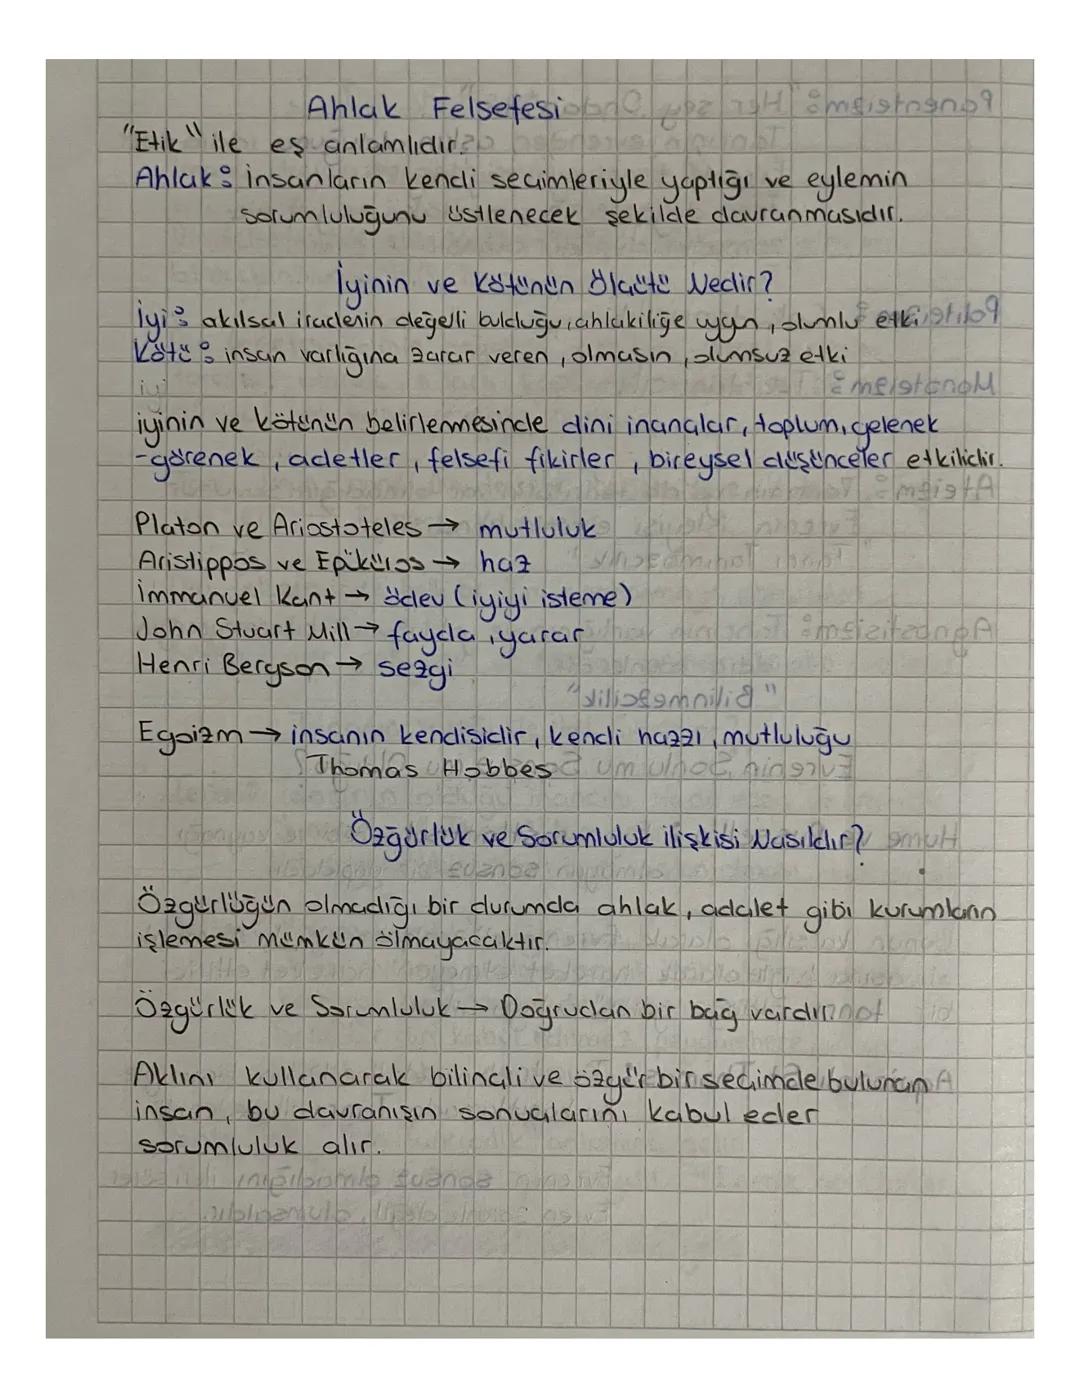 Ahlak Felsefesi
"Etik" ile eş anlamlıdır.
Ahlak: insanların kendi seçimleriyle yaptığı ve eylemin
sorumluluğunu üstlenecek şekilde davranmasıdır.
İyinin ve Kötünün Ölçütü Nedir?
İyi: akılsal iradenin değerli bulduğu, ahlakiliğe uygun, olumlu etki
Kötü: insan varlığına zarar veren, olmasın, olumsuz etki
iyi
iyinin ve kötünün belirlenmesinde dini inançlar, toplum, gelenek
-görenek, adetler, felsefi fikirler, bireysel düşünceler etkilidir.
Platon ve Ariostoteles → mutluluk
Aristippos ve Epiküros → haz
İmmanuel Kant → ödev (iyiyi isteme)
John Stuart Mill → fayda, yarar
Henri Bergson → sezgi
Egoizm → insanın kendisidir, kendi hazzı, mutluluğu
Thomas Hobbes
Özgürlük ve Sorumluluk ilişkisi Nasıldır?
Özgürlüğün olmadığı bir durumda ahlak, adalet gibi kurumların
işlemesi mümkün olmayacaktır.
Özgürlük ve Sorumluluk → Doğrudan bir bağ vardır.
Aklını kullanarak bilinçli ve özgür bir seçimde bulunan
insan, bu davranışın sonuçlarını kabul eder
sorumluluk alır.